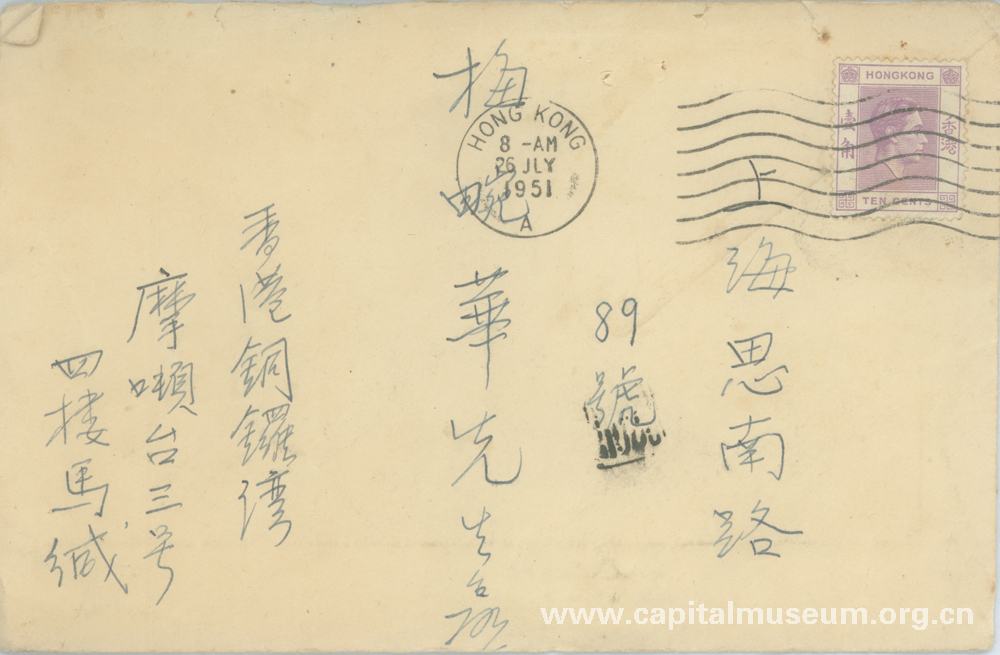 HONGKONG
壹角
香港
TEN CENTS
HONG KONG
8 -AM
26 JLY
1951
A
上海思南路
89號
梅畹華先生
香港銅鑼湾
摩噸台三号
四楼馬緘
www.capitalmuseum.org.cn